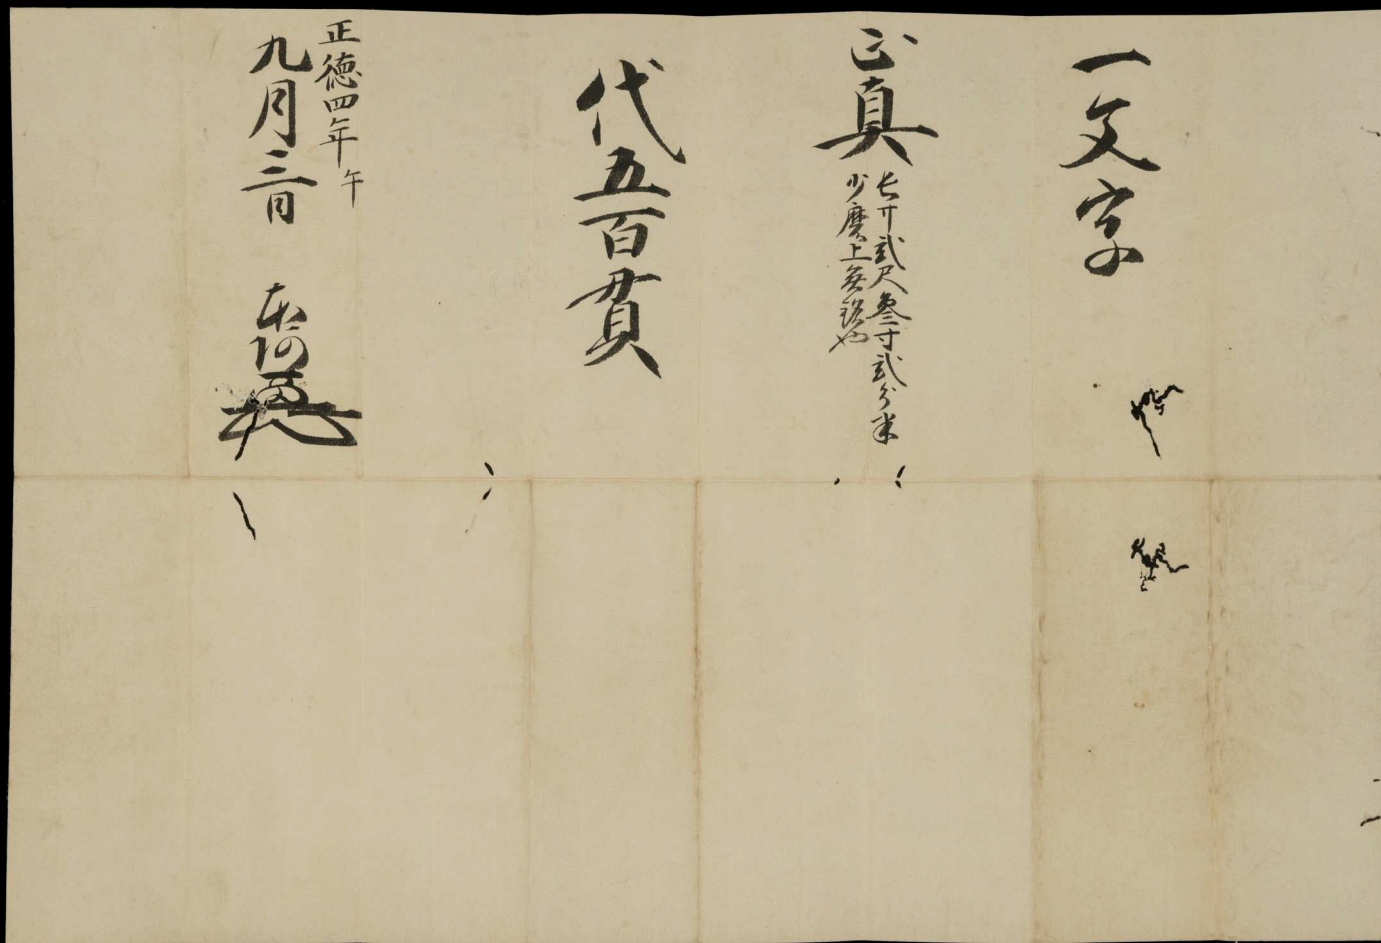 一文字
正真
長サ弐尺参寸弐分半
少磨上無銘也
代五百貫
正徳四年午
九月三日
本阿